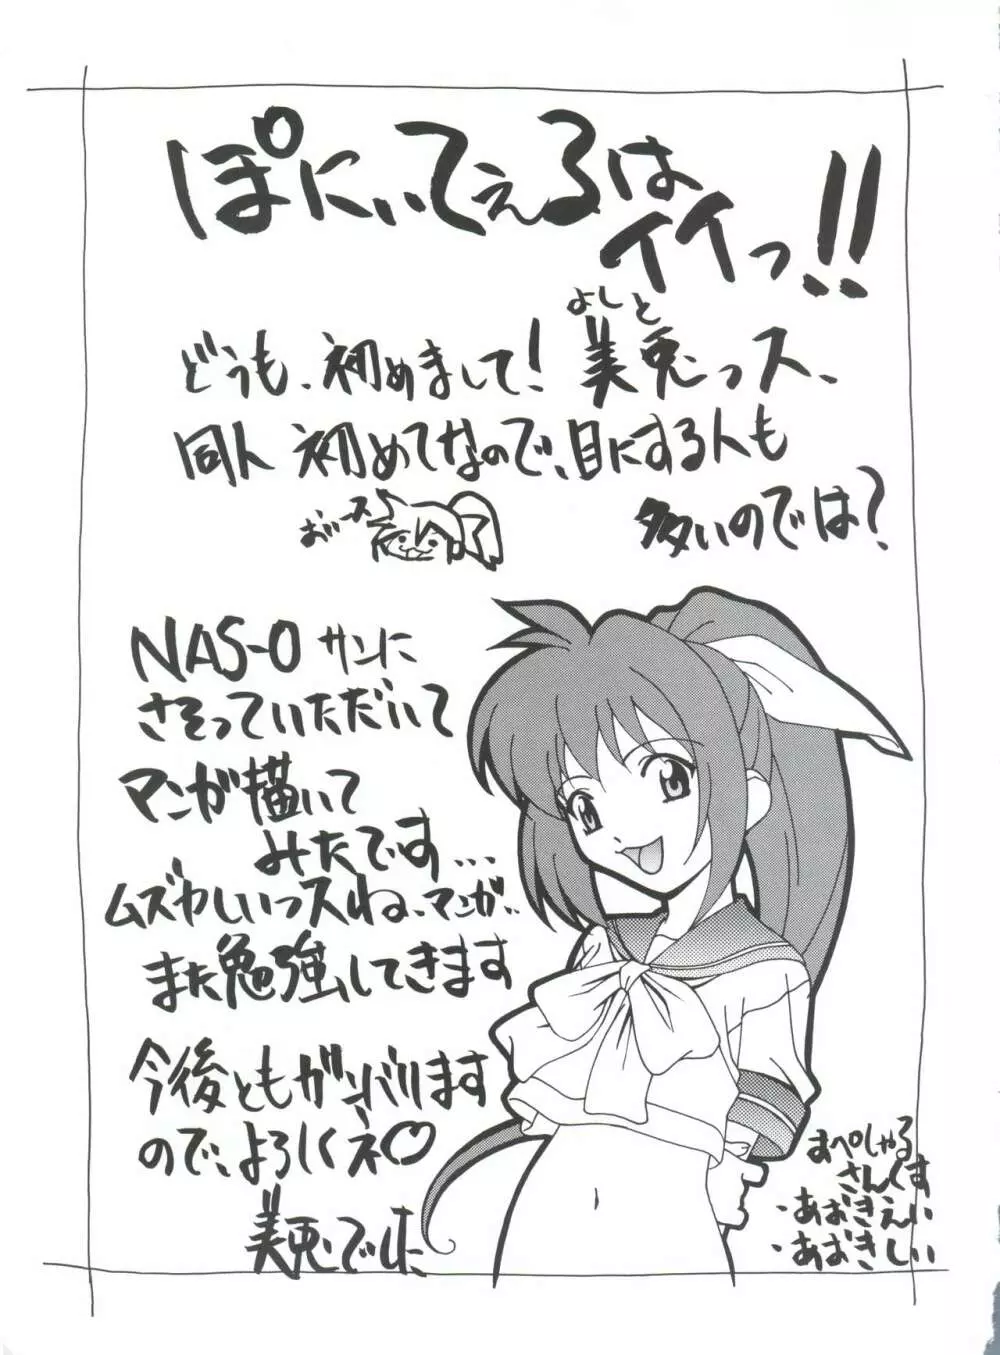 ぽにぃてぇるは
イイっ!!
よしと
どうも、初めまして!美兎っス、
同人初めてなので、目にする人も
多いのでは?
おぃース
NAS-O サンに
さそっていただいて
マンガ描いて
みたです…
ムズかしいっスね、マンガ..
また勉強してきます
今後ともガンバリます
ので、よろしくネ♡
美兎でした
すぺしゃる
さんくす
・あおきえい
・あおきしい